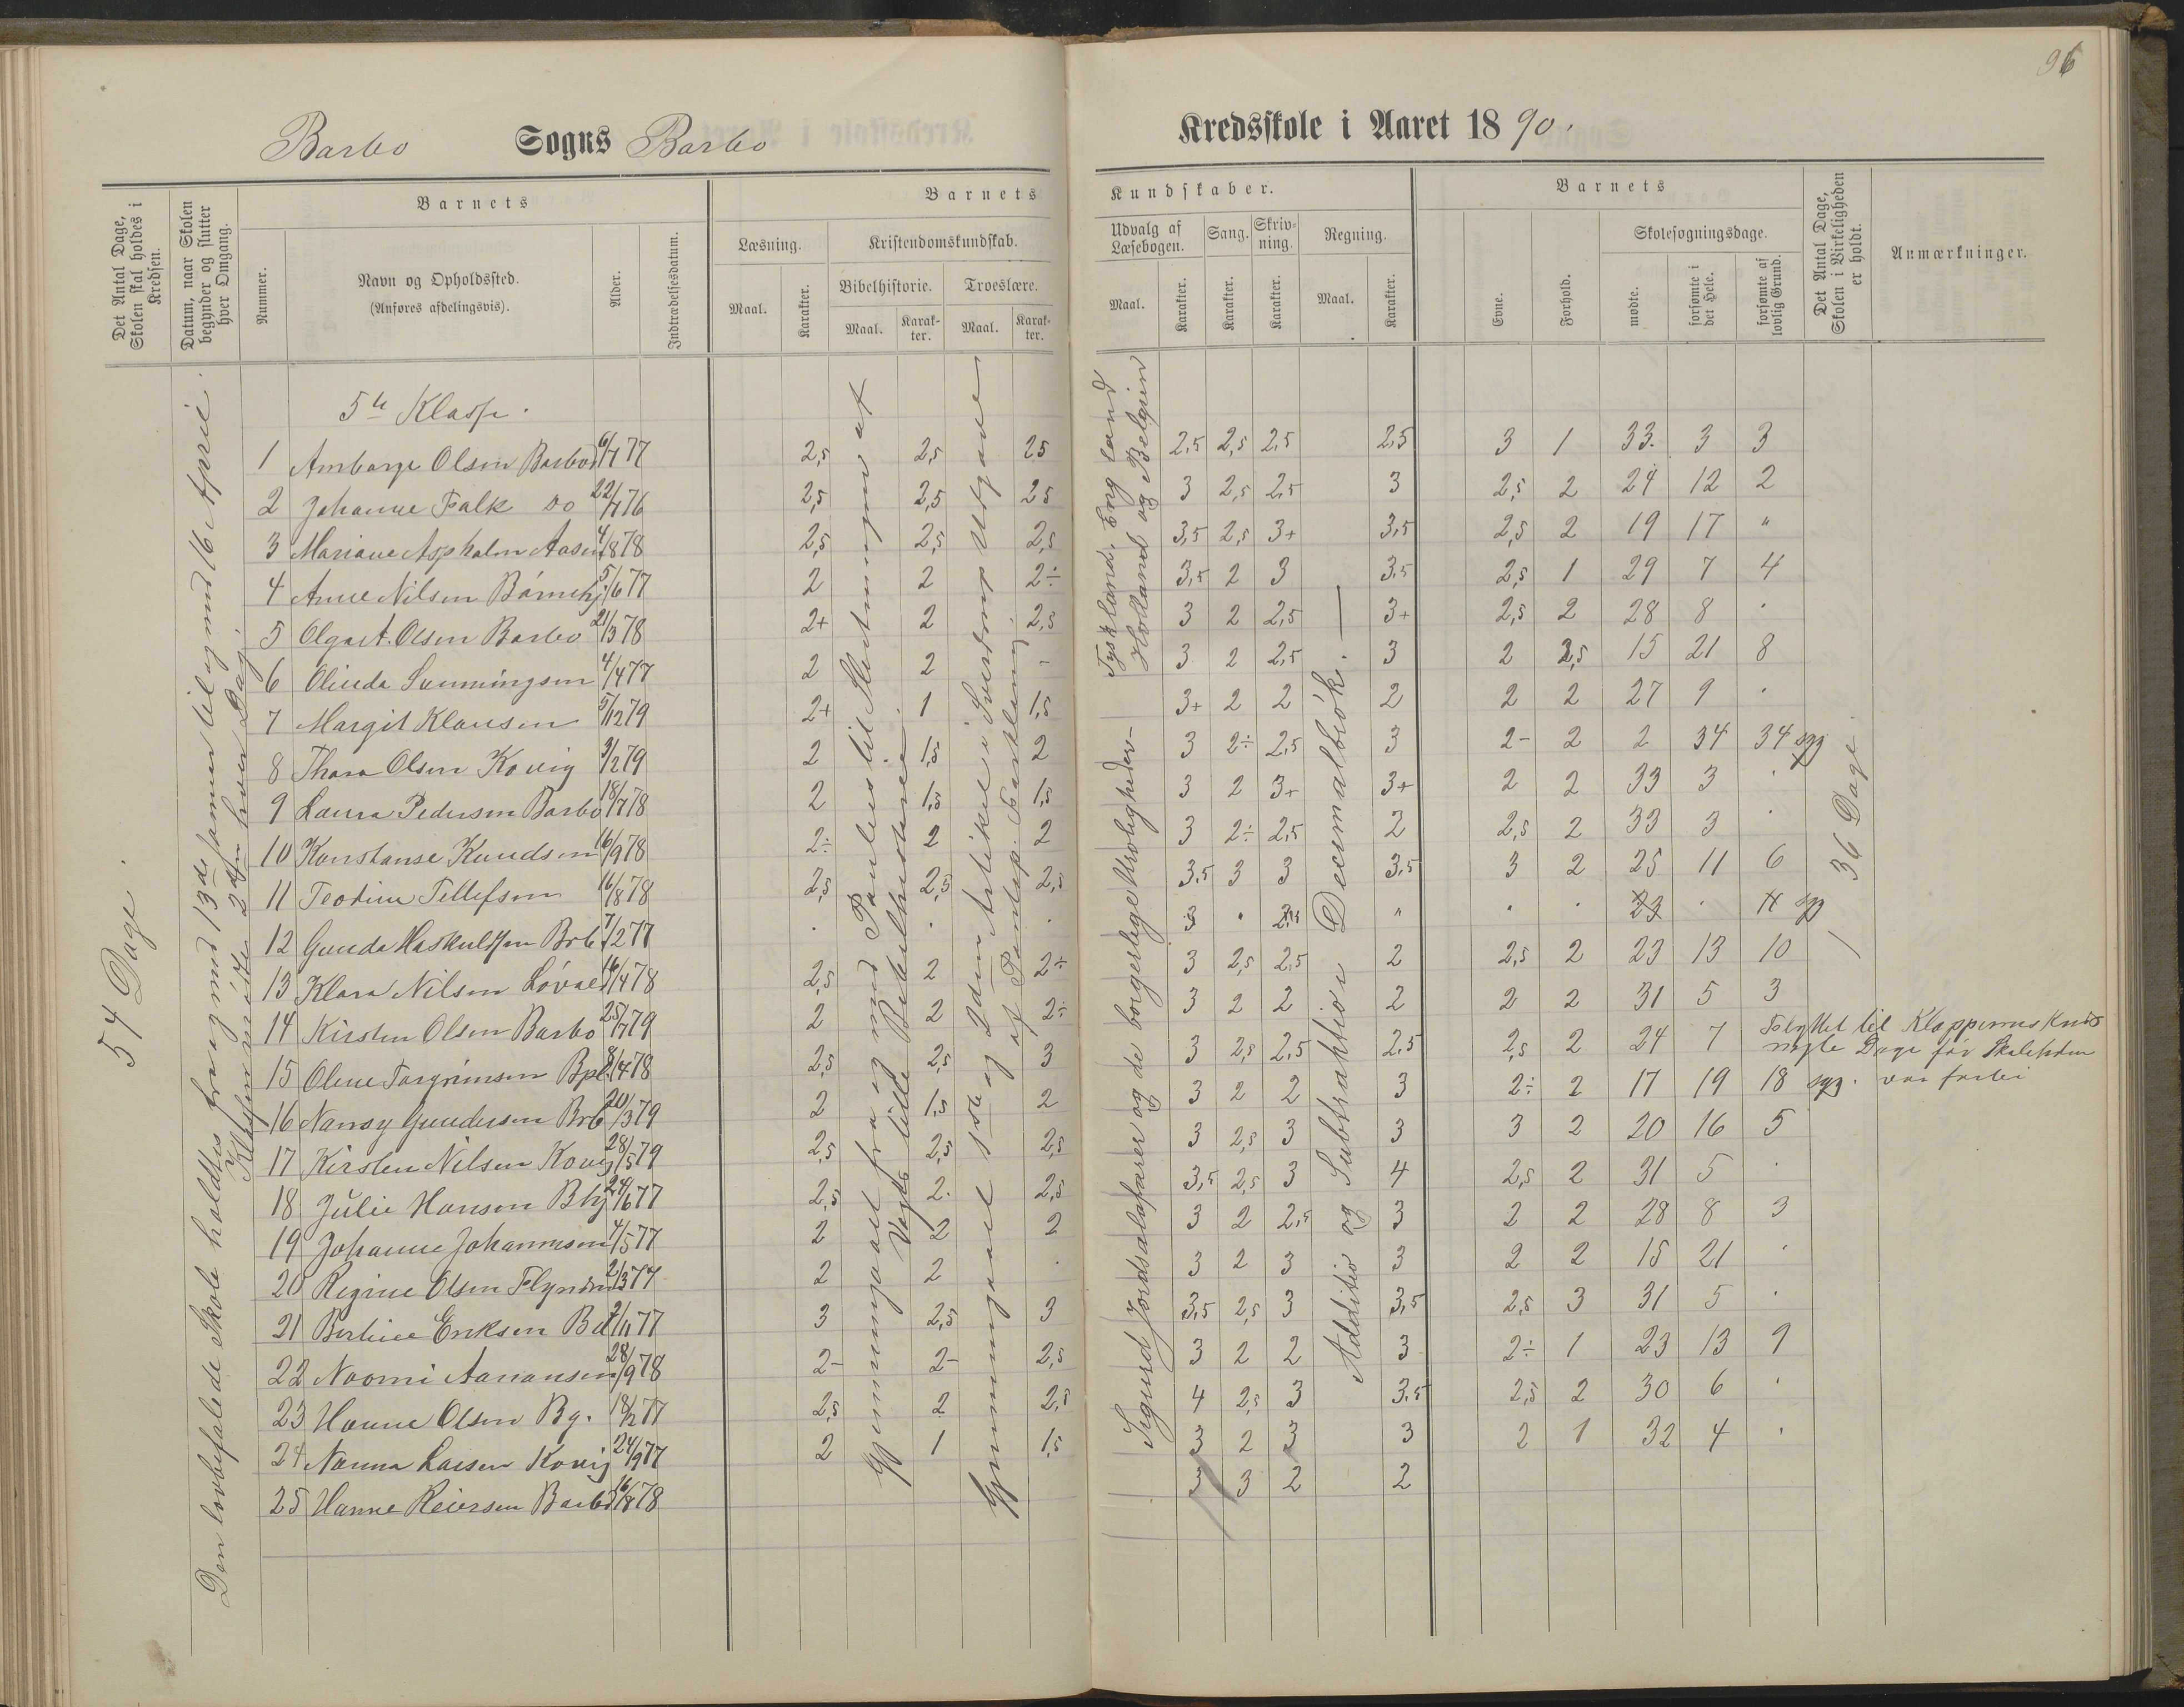 96
Barbo Sogns Barbo
Kredsskole i Aaret 1890.
Det Antal Dage, Skolen skal holdes i Kredsen.
Datum, naar Skolen begynder og slutter hver Omgang.
Barnets
Nummer.
Navn og Opholdssted.
(Anføres afdelingsvis).
Alder.
Indtrædelsesdatum.
Barnets
Læsning.
Kristendomskundskab.
Maal.
Karakter.
Bibelhistorie.
Troeslære.
Maal.
Karakter.
Maal.
Karakter.
Kundskaber.
Udvalg af Læsebogen.
Sang.
Skrivning.
Regning.
Maal.
Karakter.
Karakter.
Karakter.
Maal.
Karakter.
Barnets
Evne.
Forhold.
Skolesøgningsdage.
mødte.
forsømte i det Hele.
forsømte af lovlig Grund.
Det Antal Dage, Skolen i Virkeligheden er holdt.
Anmærkninger.
54 Dage.
Den lovbefalede Skole holdtes fra og med 13de Januar til og med 16 April.
Klassen mødte 2den hver Dag.
Gjennemgaaet fra og med Paulus til Slutningen af
Vogts lille Bibelhistorie.
Gjennemgaaet 1ste og 2den Artikel i Sverdrups Udgave
af Pontop. Forklaring.
Tyskland, England
Holland og Belgien
Sigurd Jordsalafarer og de borgerlige Uroligheder
Addition og Subtraktion i Decimalbrøk.
36 Dage
5te Klasse.
1 Amborge Olsen Barbo 6/7 77 2,5 2,5 25 2,5 2,5 2,5 2,5 3 1 33. 3 3
2 Johanne Falk Do 22/7 76 2,5 2,5 25 3 2,5 2,5 3 2,5 2 24 12 2
3 Mariane Aspholm Aasen 4/8 78 2,5 2,5 2,5 3,5 2,5 3+ 3,5 2,5 2 19 17 "
4 Anne Nilsen Børnehj. 5/6 77 2 2 2÷ 3,5 2 3 3,5 2,5 1 29 7 4
5 Olga A. Olsen Barbo 21/3 78 2+ 2 2,5 3 2 2,5 3+ 2,5 2 28 8 .
6 Olinda Sunningsen 4/4 77 2 2 - 3 2 2,5 3 2 2,5 15 21 8
7 Margit Klausen 5/12 79 2+ 1 1,5 3+ 2 2 2 2 2 27 9 .
8 Thora Olsen Kovig 3/2 79 2 1,5 2 3 2÷ 2,5 3 2- 2 2 34 34 syg
9 Laura Pedersen Barbo 18/7 78 2 1,5 1,5 3 2 3+ 3+ 2 2 33 3 .
10 Konstanse Knudsen 16/9 78 2÷ 2 2 3 2÷ 2,5 2 2,5 2 33 3 .
11 Teodine Tellefsen 16/8 78 2,5 2,5 2,5 3,5 3 3 3,5 3 2 25 11 6
12 Gunda Haskuldsen Brb. 7/2 77 . . . 3 " " . . 23 . syg
13 Klara Nilsen Løvaas 16/4 78 2,5 2 2÷ 3 2,5 2,5 2 2,5 2 23 13 10
14 Kirsten Olsen Barbo 25/7 79 2 2 2÷ 3 2 2 2 2 2 31 5 3
15 Olene Torgrimsen Bpl. 8/4 78 2,5 2,5 3 3 2,5 2,5 2,5 2,5 2 24 7 Flyttet til Kloppernes Kreds
nogle Dage før Skoletiden
var forbi
16 Nansy Gundersen Brb 20/3 79 2 1,5 2 3 2 2 3 2÷ 2 17 19 18 syg.
17 Kirsten Nilsen Kovig 28/5 79 2,5 2,5 2,5 3 2,5 3 3 3 2 20 16 5
18 Julie Hansen Bhj 24/6 77 2,5 2. 2,5 3,5 2,5 3 4 2,5 2 31 5 .
19 Johanne Johannesen 4/5 77 2 2 2 3 2 2,5 3 2 2 28 8 3
20 Regine Olsen 2/3 77 2 2 . 3 2 3 3 2 2 15 21 .
21 Berline Eriksen 2/11 77 3 2,5 3 3,5 2,5 3 3,5 2,5 3 31 5 .
22 Noomi Aanonsen 28/9 78 2- 2- 2,5 3 2 2 3 2÷ 1 23 13 9
23 Hanna Olsen Bg. 18/2 77 2,5 2 2,5 4 2,5 3 3,5 2,5 2 30 6 .
24 Nanna Larsen Kovig 24/9 77 2 1 1,5 3 2 3 3 2 1 32 4 .
25 Hanne Reiersen Barbo 16/8 78 3 3 2 2